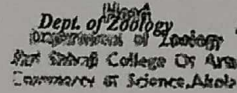 Head
Dept. of Zoology
Department of Zoology
Shri Shivaji College Of Arts
Commerce & Science, Akola